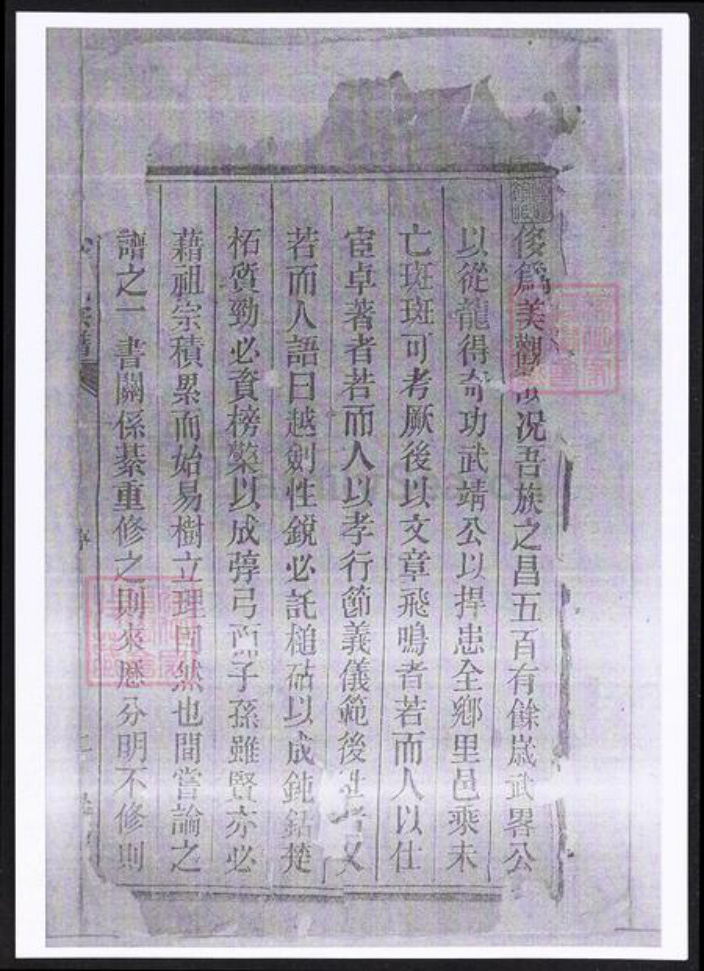 侈爲美觀況吾族之昌五百有餘歲武畧公
以從龍得奇功武靖公以捍患全鄉里邑乘未
亡斑斑可考厥後以文章飛鳴者若而人以仕
宦卓著者若而人以孝行節義儀範後世者又
若而人語曰越劍性銳必託槌砧以成鈍鈷楚
柘質勁必資榜檠以成弴弓而子孫雖賢亦必
藉祖宗積累而始易樹立理固然也間嘗論之
譜之一書關係綦重修之則來歷分明不修則
宗譜
序
二